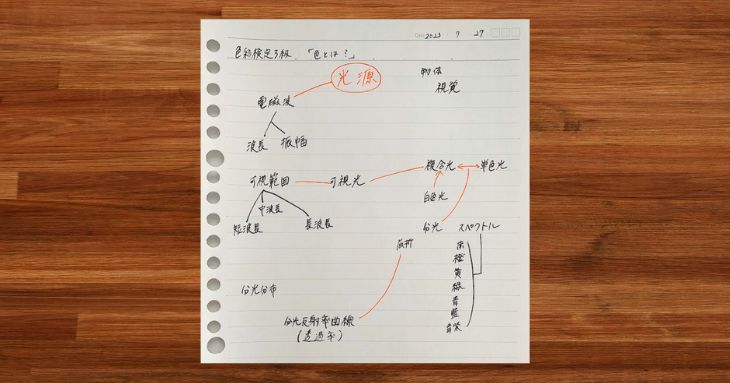 2023 / 7 27
色彩検定3級 「色とは?」
光源
物体
視覚
電磁波
波長 振幅
可視範囲 可視光 複合光 単色光
白色光
中波長
短波長 長波長
分光 スペクトル
屈折
赤
橙
黄
緑
青
藍
青紫
分光分布
分光反射率曲線
(透過率)